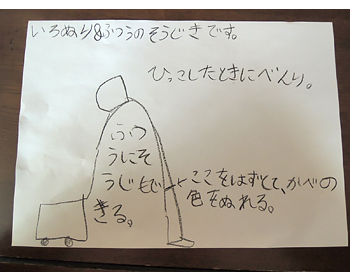 いろぬり&ふつうのそうじきです。
ひっこしたときにべんり。
ふつ
うにそ
うじもで
きる。
ここをはずすと、かべの
色をぬれる。